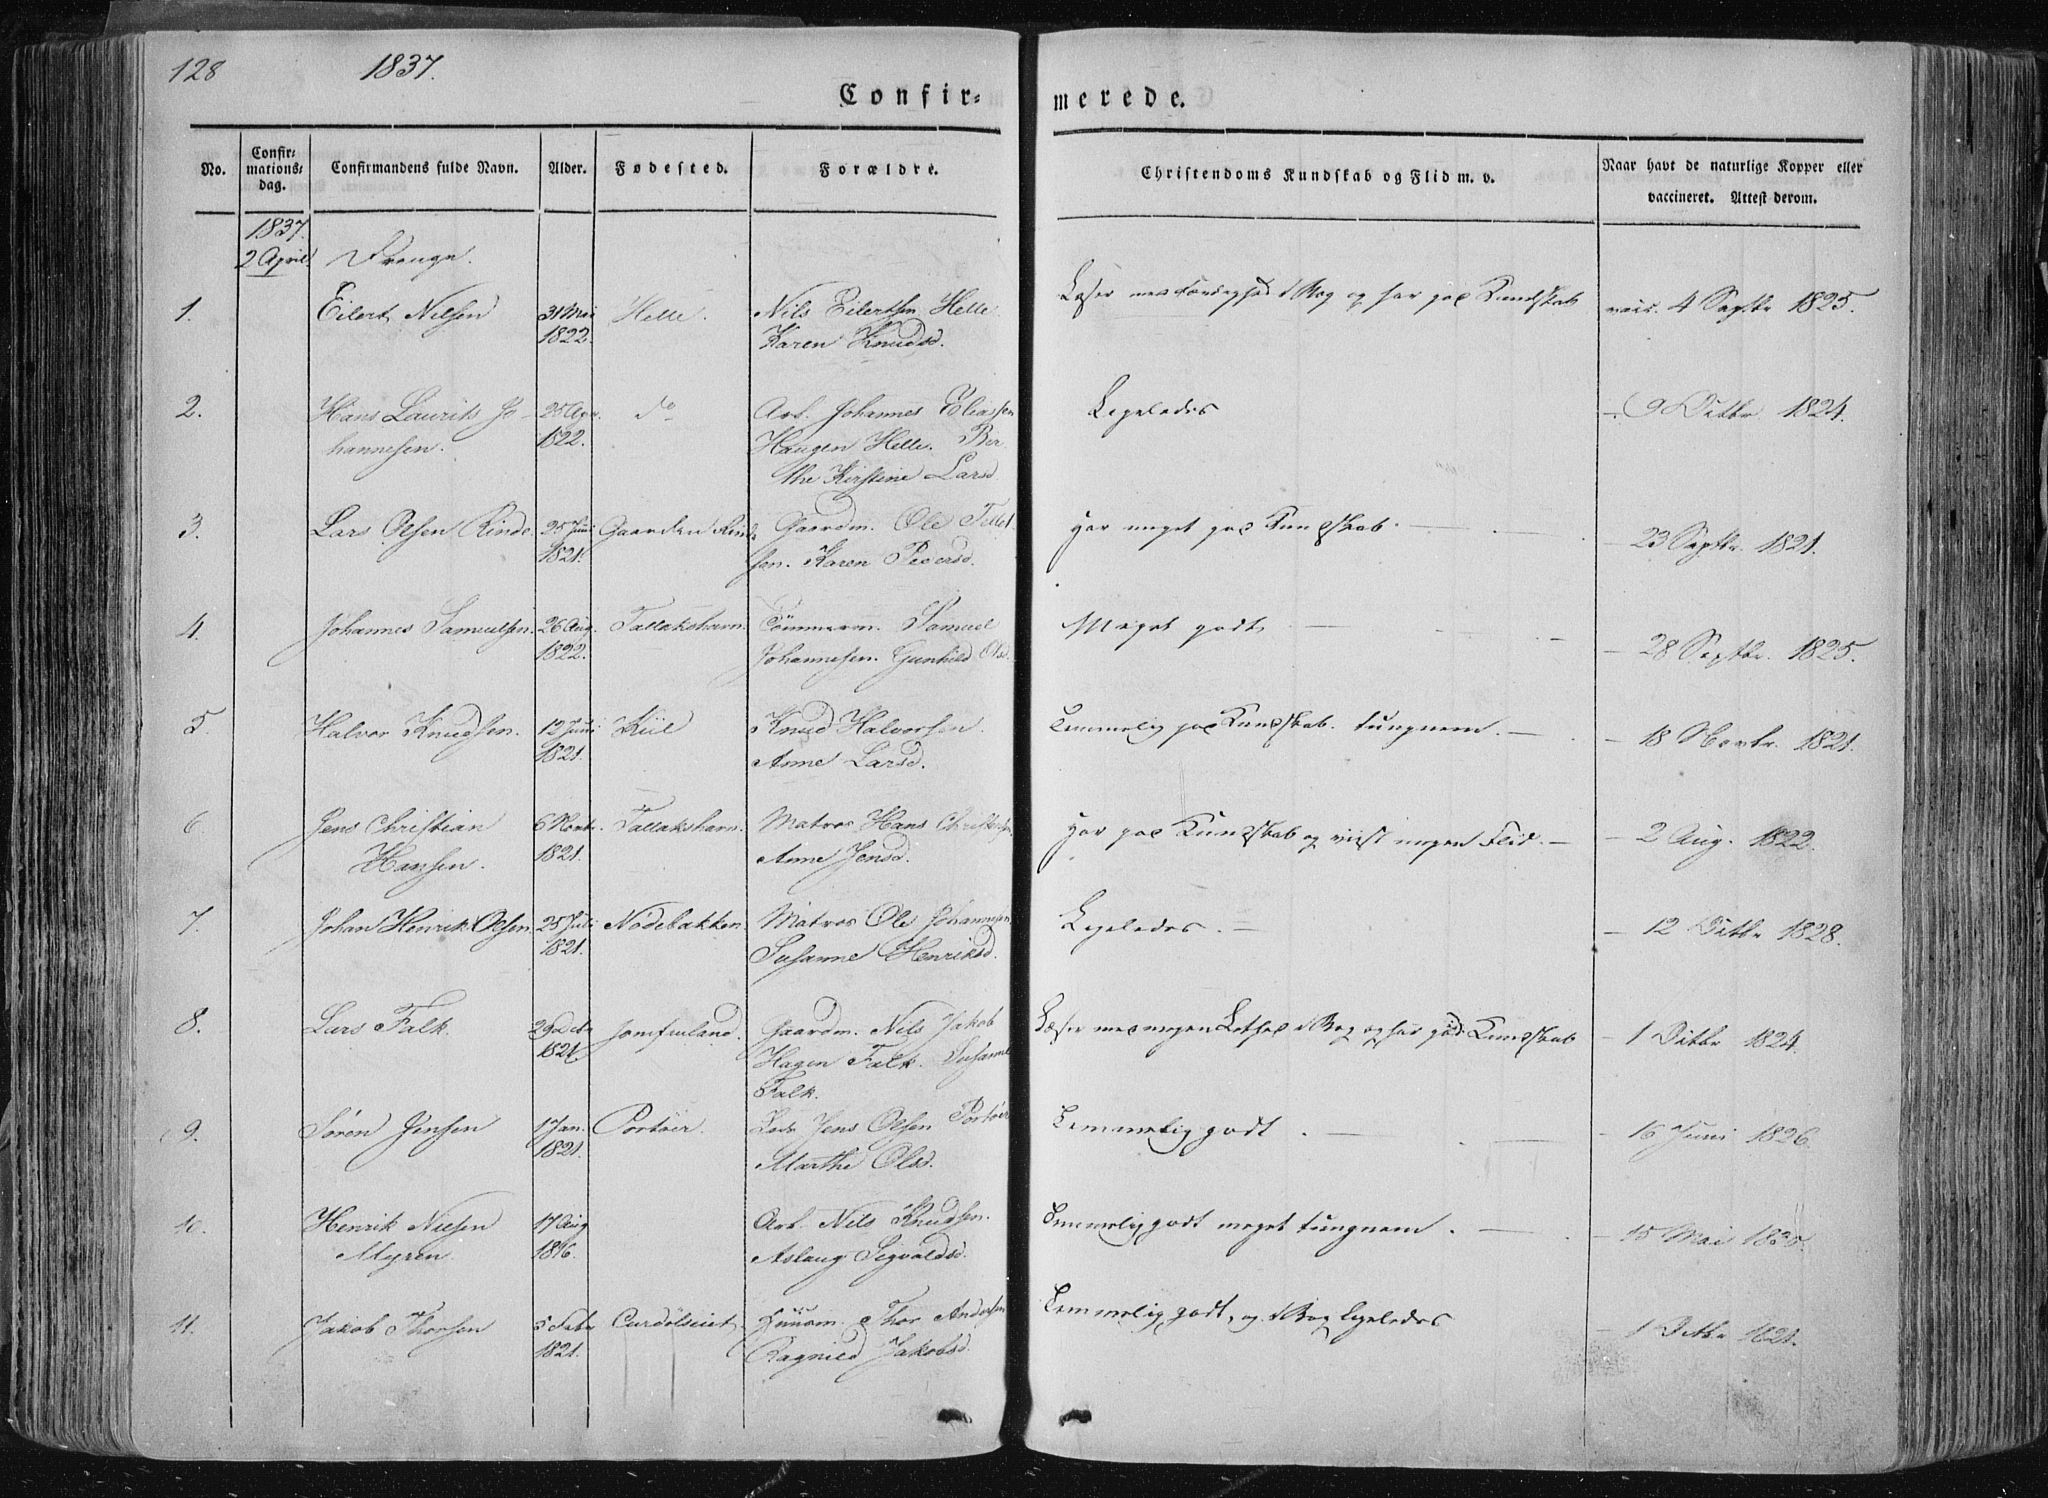 128 1837.
Confir= merede.
No. Confir= mations= dag. Confirmandens fulde Navn. Alder. Fødested. Forældre. Christendoms Kundskab og Flid m. v. Naar havt de naturlige Kopper eller vaccineret. Attest derom.
1837.
2 April Drenge.
1. Eilert Nilsen 31 Mai Helle. Nils Eilertsen Helle Læser med Færdighed i Bog og har god Kundskab vacc. 4 Septbr 1825.
1822. Karen Knudsd.
2. Hans Laurits Jo- 25 Apr. do Arb. Johannes Eliassen Ligeledes - 9 Octbr 1824.
hannesen. 1822. Haugen Helle. Ber
the Kirstine Larsd
3. Lars Olsen Rinde 25 Juni Gaarden Rinde Gaardm. Ole Tellef Har meget god Kundskab. - 23 Septbr. 1821.
1821. sen. Karen Pedersd.
4. Johannes Samuelsen. 26 Aug. Tallakshavn. Tömmerm. Samuel Meget godt - 28 Septbr. 1825.
1822. Johannesen. Gunhild Olsd.
5. Halvor Knudsen. 12 Juni Kiil Knud Halvorsen. Temmelig god Kundskab. tungnem. - 18 Novbr. 1821.
1821. Anne Larsd.
6 Jens Christian 6 Novbr. Tallakshavn. Matros Hans Christensen Har god Kundskab og viist megen Flid. - 2 Aug. 1822.
Hansen. 1821. Anne Jensd.
7. Johan Henrik Olsen. 25 Juli Nödebakken. Matros Ole Johannesen. Ligeledes. - 12 Octbr 1828.
1821. Susanne Henriksd.
8. Lars Falk. Jomfruland. Gaardm. Nils Jakob Læser med megen Lethed i Bog og har god Kundskab - 1 Octbr 1824.
1821. Hagen Falk. Susanne
Falk.
9. Sören Jensen 1 Jan. Portöer. Lods Jens Olsen Portöer Temmelig godt. - 16 Juni 1826.
1821. Marthe Olsd.
10. Henrik Nilsen 17 Aug Arb. Nils Knudsen. Temmelig godt meget tungnem. - 15 Mai
Myren. 1816. Aslaug Sigvaldsd.
11. Jakob Thorsen 5 Febr Huusm. Thor Andersen Temmelig godt, og i Bog ligeledes - 1 Octbr 1821.
1821. Ragnild Jakobsd.